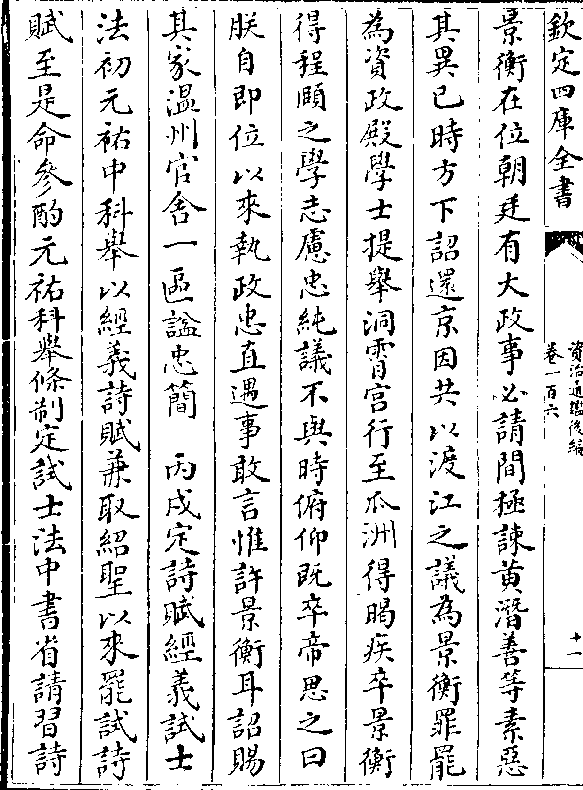 欽定四庫全書
資治通鑑後編
卷一百六
十一
景衡在位朝廷有大政事必請間極諫黃潛善等素惡
其異已時方下詔還京因共以渡江之議為景衡罪罷
為資政殿學士提舉洞霄宮行至𤓰洲得暍疾卒景衡
得程頤之學志慮忠純議不與時俯仰既卒帝思之曰
朕自即位以來執政忠直遇事敢言惟許景衡耳詔賜
其家温州官舍一區諡忠簡　丙戌定詩賦經義試士
法初元祐中科舉以經義詩賦兼取紹聖以來罷試詩
賦至是命參酌元祐科舉條制定試士法中書省請習詩